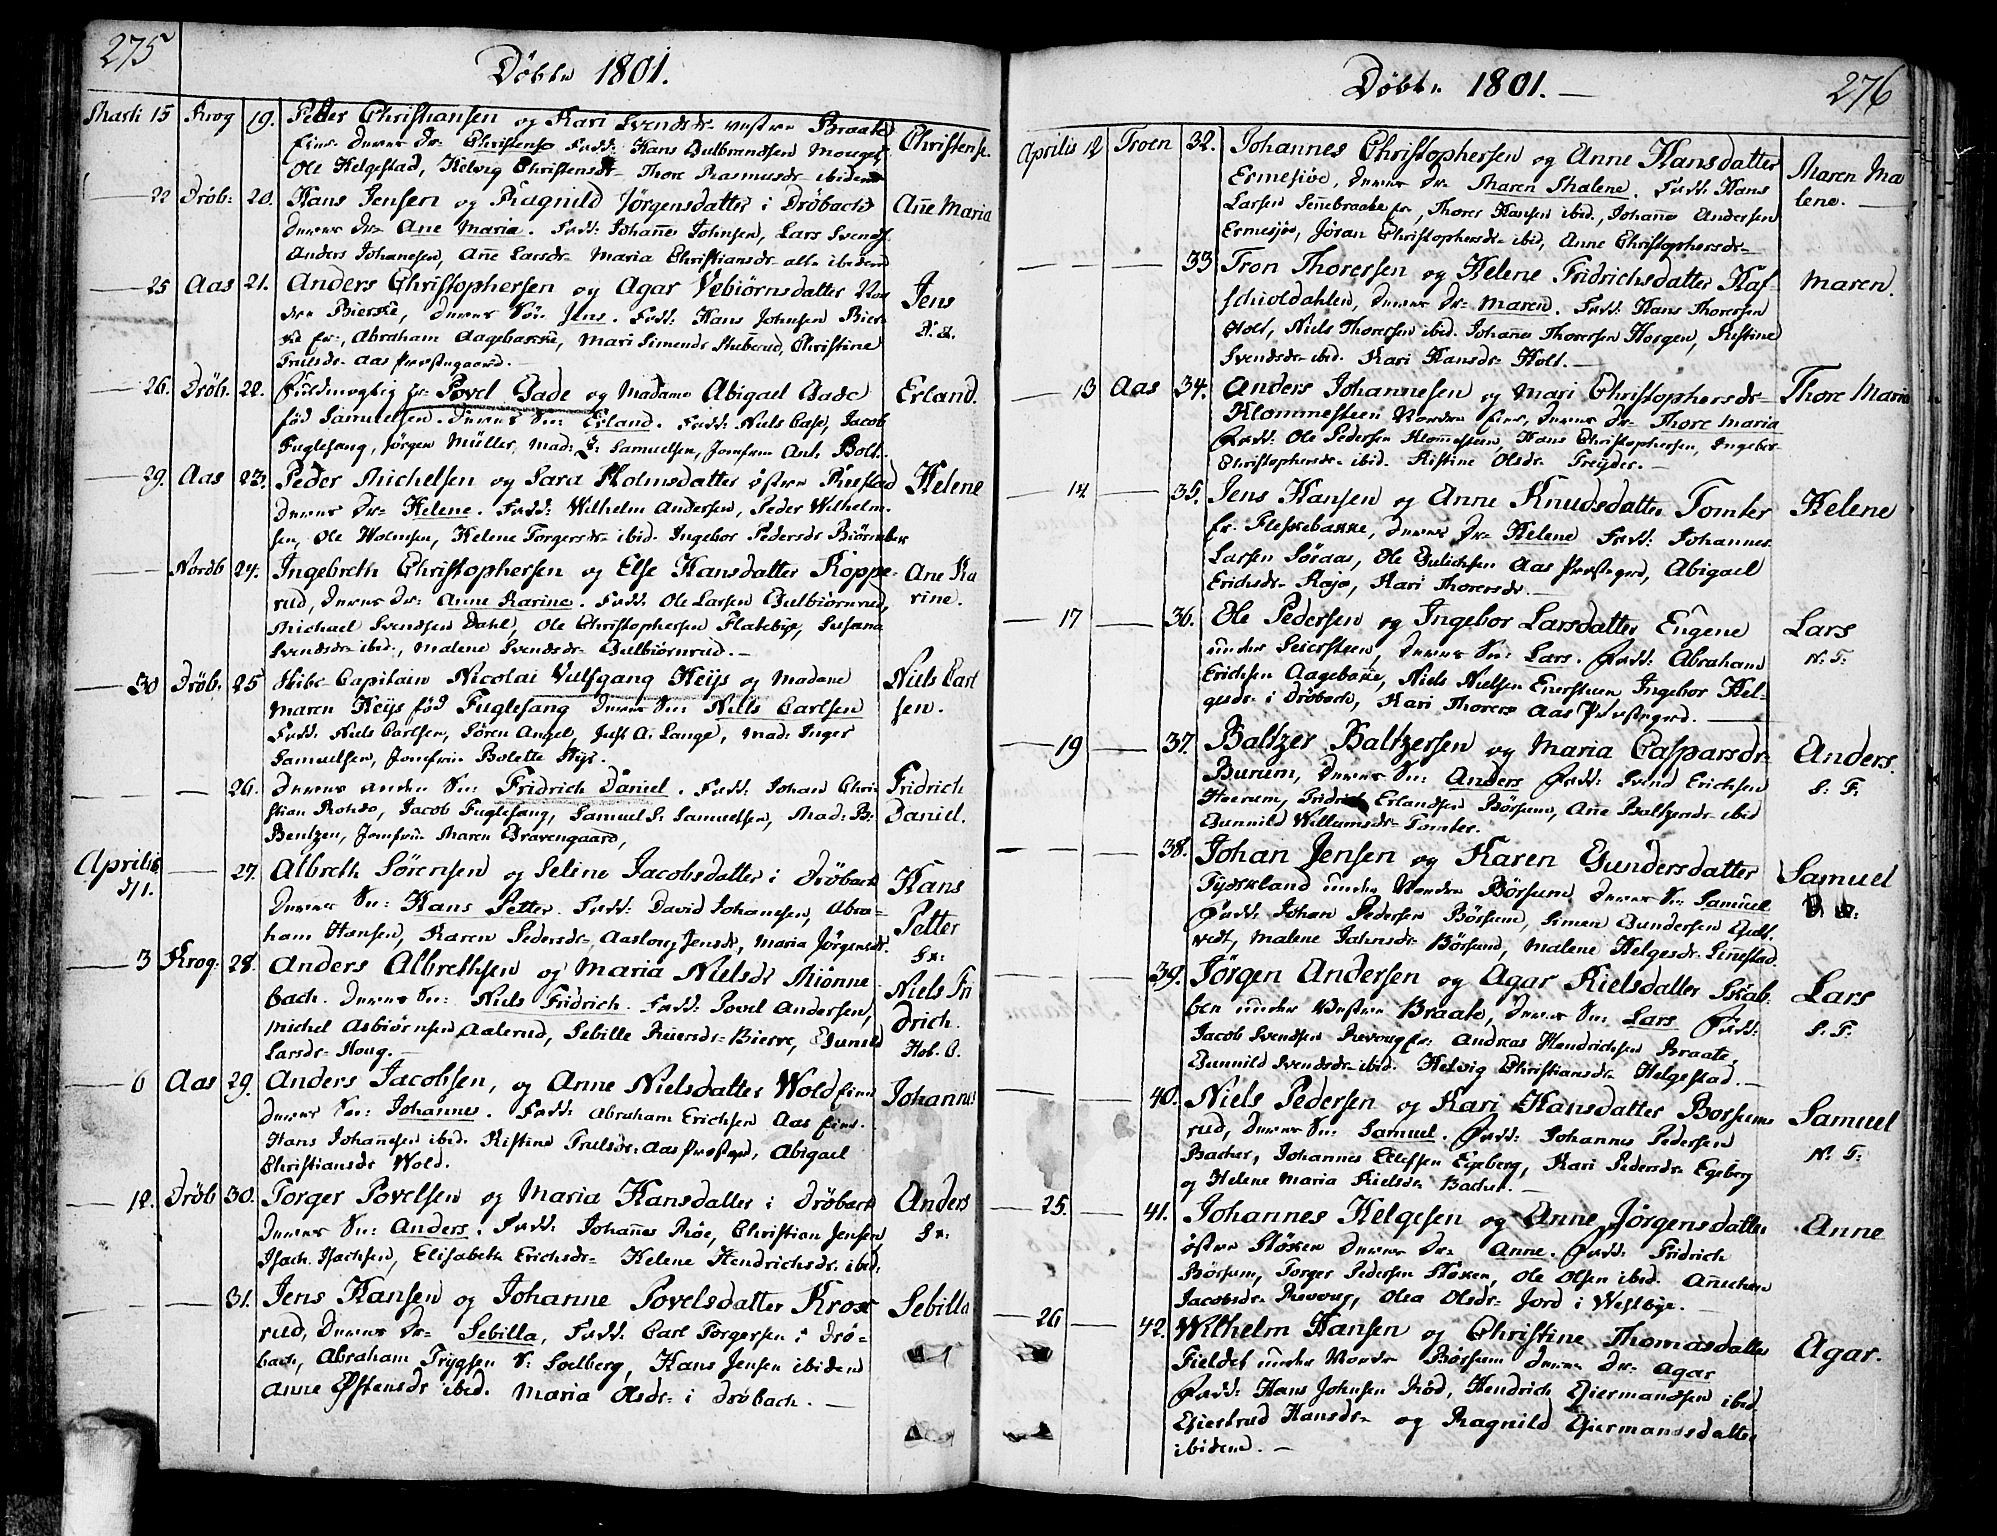 275
Döbte 1801.
Martii 15 Krog 19. Peder Christiansen og Kari Svendsdr vestre Braate
Eier deres Dr Christense Fadd: Hans Gulbrandsen
Ole Helgestad, Helvig Christensdr Thore Rasmusdr ibidem
Christense.
22 Dröb: 20. Hans Jensen og Ragnild Jörgensdatter i Dröbach
deres Dr Ane Maria. Fadd: Johanes Johnsen, Lars Svends.
Anders Johanesen, Ane Larsdr Maria Christiansdr alle ibidem
Ane Maria
25 Aas 21. Anders Christophersen og Agar Vebiörnsdatter
Bierke, deres Sön Jens. Fadd: Hans Johnsen
Abraham Aagebakke, Mari Simensdr Stuberud, Christine
Trulsdr Aas Præstegaard.
Jens
26. Dröb. 22. Fuldmegtig Hr Povel Gade og Madame Abigael Gade
föd Samuelsen. Deres Sn: Erland. Fadd: Niels Carls, Jacob
Fuglesang, Jörgen Müller, Mad: Samuelsen, Jomfrue Ant: Bolt.
Erland.
29. Aas 23. Peder Michelsen og Sara Holmsdatter östre Rustad
deres Dr Helene. Fadd: Wilhelm Andersen, Peder Wilhelm-
sen, Ole Holmsen, Helene Torgersdr ibid. Ingebor Pedersdr Biörnebek
Helene
Nordb 24. Ingebreth Christophersen og Else Hansdatter Röppe-
rud, deres Dr: Anne Karine. Fadd: Ole Larsen Gulbiörnrud,
Michael Svendsen Dahl, Ole Christophersen Flatebye, Susana
Svendsdr ibid., Malene Svendsdr Gulbiörnrud.
Ane Ka
rine.
30 Dröb. 25 Skibs Capitain Nicolai Vulfgang Heijs og Madame
Maren Heijs föd Fuglesang deres Sn: Niels Carlsen
Fadd: Niels Carlsen, Sören Angel, Just A. Lange, Mad: Inger
Samuelsen, Jomfrue Bolette Hijs.
Niels Carl
sen.
26. deres anden Sn: Fridrich Daniel. Fadd: Johan Chri-
stian Rohde, Jacob Fuglesang, Samuel S: Samuelsen, Mad: B:
Bentzen, Jomfrue Maren Gravengaard,
Fridrich
Daniel.
Aprilis 27. Albreth Sörensen og Seline Jacobsdatter i Dröbach
deres Sn: Hans Petter. Fadd: David Johanesen, Abra-
ham Hansen, Karen Pedersdr, Aaslong Jensdr, Maria Jörgensdr.
Hans
Petter
3 Krog. 28. Anders Albrethsen og Maria Nielsdr Miönne-
bach. deres Sn: Niels Fridrich. Fadd: Povel Andersen,
Michel Asbiörnsen Aalerud, Sebille Bierke, Gunild
Larsdr Houg.
Niels Fri
drich.
6 Aas 29. Anders Jacobsen, og Anne Nielsdatter Wold Eier
deres Sn: Johannes. Fadd: Abraham Erichsen Aas
Hans Johanesen ibid. Kistine Trulsdr Aas Præstegrd, Abigael
Christiansdr Wold.
Johannes
12. Dröb 30. Torger Povelsen og Maria Hansdatter i Dröbach
deres Sn: Anders. Fadd: Johanes Röe, Christian Jensen
Isach Isachsen, Elisabeth Erichsdr Helene Hendrichsdr ibid:
Anders
31. Jens Hansen og Johanne Povelsdatter Krox-
rud, deres Dr Sebilla, Fadd: Carl Torgersen i Drö-
bach, Abraham Trygsen Solberg, Hans Jensen ibidem
Anne Östensdr ibid. Maria Olsdr i Dröbach.
Sebilla
276
Döbte 1801.
Aprilis 12 Troen 32. Johannes Christophersen og Anne Hansdatter
Ermesiöe, deres Dr Maren Malene. Fadd: Hans
Larsen Senebraate, Thorer Hansen ibid., Johanes Andersen
Ermesjöe, Jöran Christophersdr ibid, Anne Christophersdr
Maren Ma
lene.
33 Tron Thorersen og Helene Fridrichsdatter Haf-
schioldahlen, deres Dr Maren. Fadd: Hans Thorersen
Holt, Niels Thorersen ibid. Johanes Thorersen Horgen, Kistine
Svendsdr ibid. Kari Hansdr Holt.
Maren.
13 Aas 34. Anders Johannesen og Mari Christophersdr
Klommesteen Nordre Eier, deres Dr Thore Maria
Fadd: Ole Pedersen Klomesteen, Hans Christophersen, Ingebor
Christophersdr ibid. Kistine Olsdr Treyder.
Thore Maria
14 35. Jens Hansen og Anne Knudsdatter Tomter
Fleskebakke, deres Dr Helene Fadd: Johannes
Larsen Söraas, Ole Gulichsen Aas Præstegrd, Abigael
Erichsdr Kaje, Kari Thorersdr.
Helene
17 36. Ole Pedersen og Ingebor Larsdatter Engene
under Seiersteen, deres Sn: Lars. Fadd: Abraham
Erichsen Aagebakke, Niels Nielsen Enersteen Ingebor Hel-
gesdr i Dröbach, Kari Thorers Aas Præstegrd.
Lars
N. T:
19 37. Baltzer Baltzersen og Maria Caspersdr
Burum, deres Sn: Anders Fadd: Svend Erichsen
Haerum, Fridrich Erlandsen Börsum, Ane Baltzersdr ibid
Gunnild Willumsdr Tomter.
Anders.
S: F:
38. Johan Jensen og Karen Gundersdatter
Tydskland under Nordre Börsum deres Sn: Samuel
Fadd: Johan Pedersen Börsum, Simen Gundersen
Malene Jahnsdr Börsum, Malene Helgesdr Linnestad.
Samuel
39. Jörgen Andersen og Agar Kielsdatter Skab-
ben under Vestre Braate, deres Sn: Lars Fadd:
Jacob Svendsen Revoug Andreas Hendrichsen Braate,
Gunnild Svendsdr ibid. Helvig Christiansdr Helgestad.
Lars
S: F:
40. Niels Pedersen og Kari Hansdatter Borsum-
rud, deres Sn: Samuel. Fadd: Johannes Pedersen
Backer, Johannes Ellefsen Egeberg, Kari Pedersdr Egeberg
og Helene Maria Kielsdr Backer.
Samuel
N. T:
25. 41. Johannes Helgesen og Anne Jörgensdatter
östre Flöxen deres Dr Anne. Fadd: Fridrich
Börsum, Torger Pedersen Flöxen, Ole Olsen ibid. Anichen
Jacobsdr Revoug, Olea Olsdr Jord i Westbye.
Anne
26 42. Wilhelm Hansen og Christine Thomasdatter
Fieldet under Nordre Börsum deres Dr Agar
Fadd: Hans Johnsen Röd, Hendrich Giermandsen ibid.
Giertrud Hansdr og Ragnild Giermandsdatter
ibidem.
Agar.